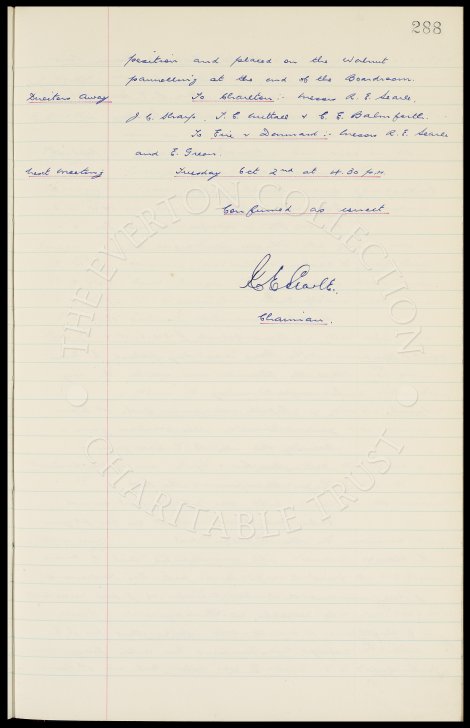 288
position and placed on the Walnut
pannelling at the end of the Boardroom.
Directors Away To Charlton:- Messrs R. E. Searle,
J. C. Sharp, T. C. Nuttall & C. E. Balmforth.
To Eire & Denmark:- Messrs R. E. Searle
and E. Green.
Next Meeting Tuesday Oct 2nd at 4.30 p.m.
Confirmed as correct
R E Searle.
Chairman.
THE EVERTON COLLECTION
CHARITABLE TRUST